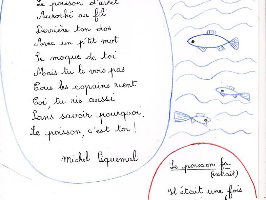 Le poisson d'avril
Accroché au fil
Derrière ton dos
Avec un p'tit mot
Se moque de toi
Mais tu le vois pas
Tous les copains rient
Toi tu ris aussi
Sans savoir pourquoi
Le poisson, c'est toi !
Michel Piquemal
Le poisson fa
(extrait)
Il était une fois